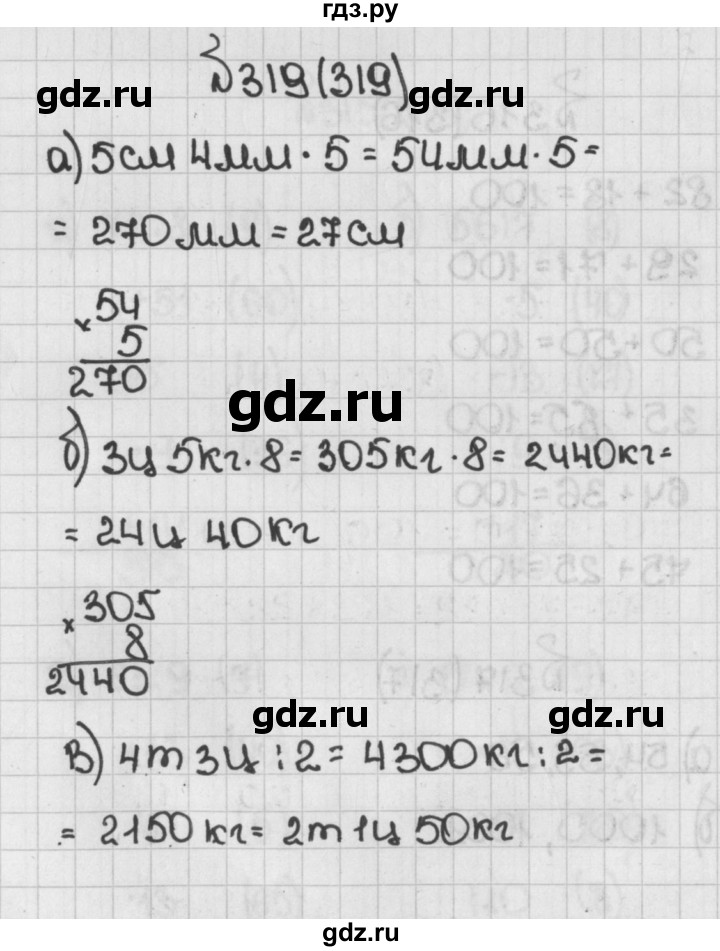 гдз.ру
№319(319)
gdz.ru gdz.ru
а) 5см 4мм · 5 = 54мм · 5 =
= 270мм = 27см
× 54
5
270
gdz.ru
б) 3ц 5кг · 8 = 305кг · 8 = 2440кг =
= 24ц 40кг
× 305
8
2440
gdz.ru gdz.ru
в) 4т 3ц : 2 = 4300кг : 2 =
= 2150кг = 2т 1ц 50кг
gdz.ru